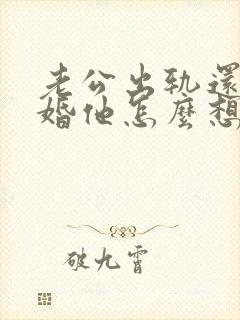 老公出軌還
婚他怎麼想
破九霄